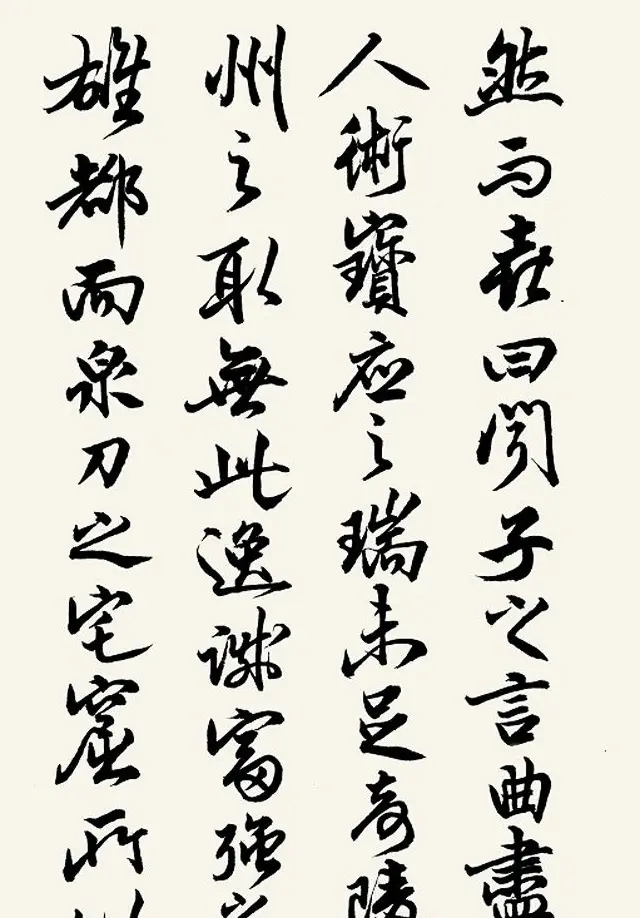 然而喜曰闻子之言曲盡
人術寶應之瑞未足奇陵
州之取無此逸誠富強
雄都而泉刀之宅窟所以